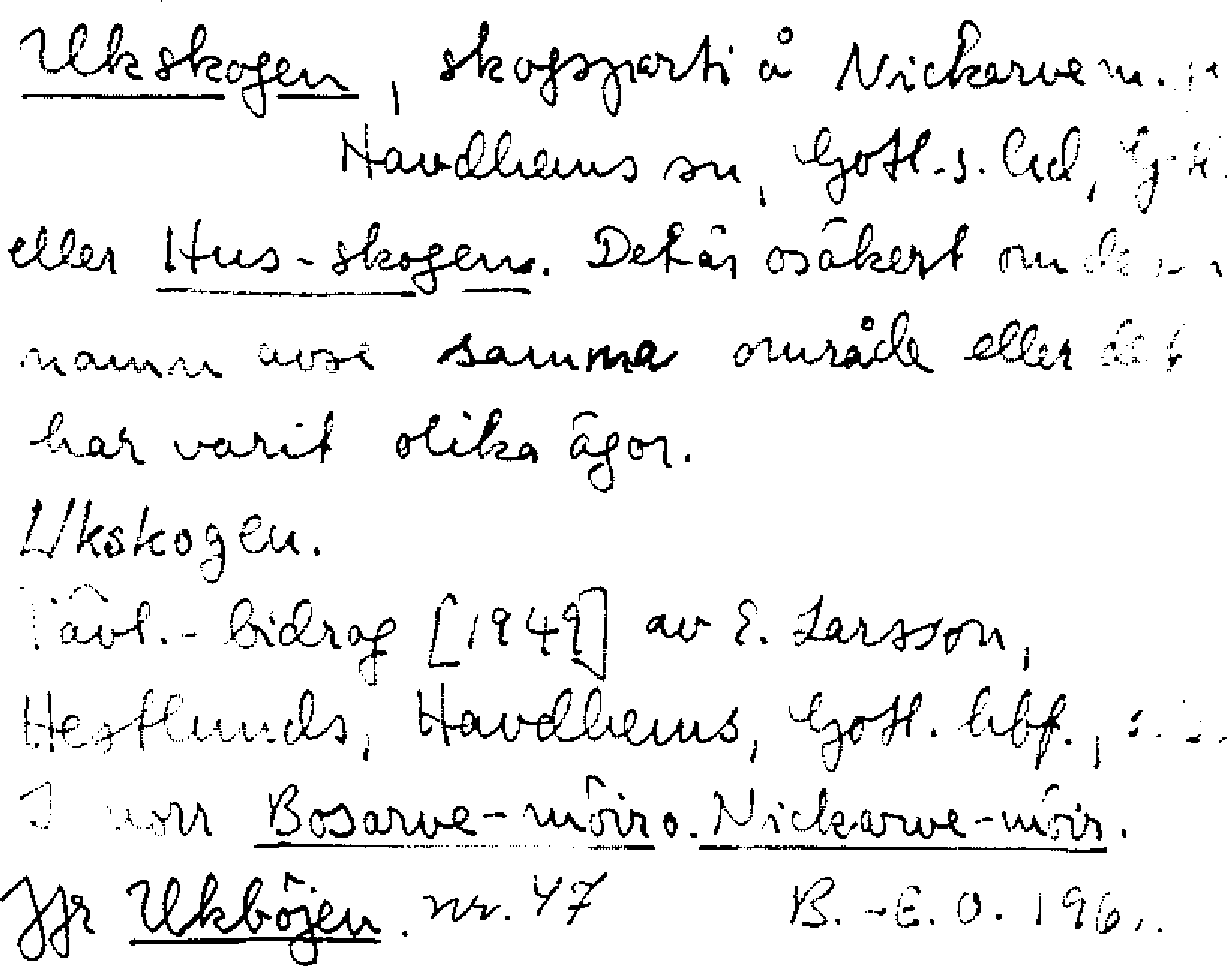 Ukskogen, skogsparti å Nickarve m.
Havdhems sn, Gotl. s. hd,
eller Hus-skogen. Det är osäkert om
namn avse samma område eller det
har varit olika ägor.
Ukskogen.
Tävl.-bidrag [1949] av E. Larsson,
Hestlunds, Havdhems, Gotl. hbf.,
I norr Bosarve-möir o. Nickarve-möir.
Jfr Ukböjen. nr. 47 B.-E. O.